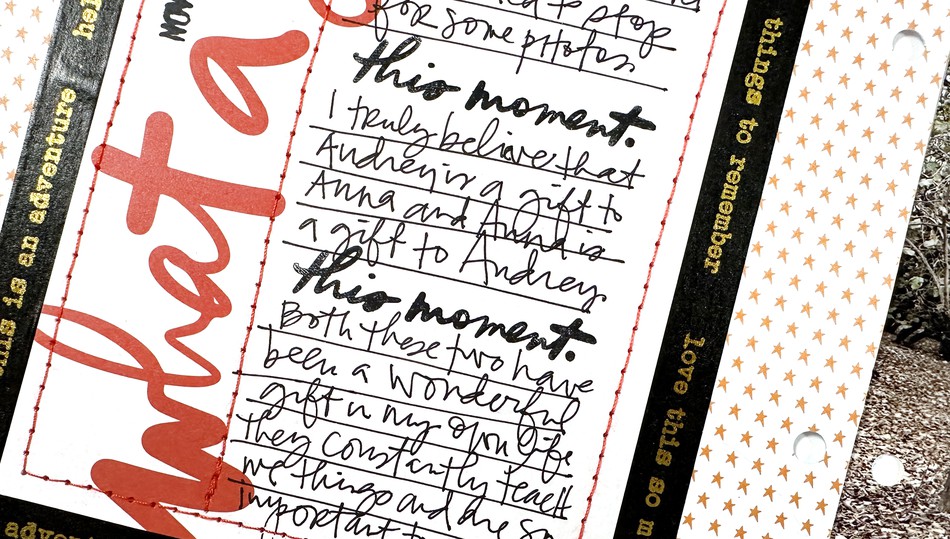 to stop
for some photos.
this moment.
I truly believe that
Audrey is a gift to
Anna and Anna is
a gift to Audrey.
this moment.
Both these two have
been a wonderful
gift in my own life
They constantly teach
me things and are so
important to
What a
NOW
this is an adventure
things to remember
love this so m
advent